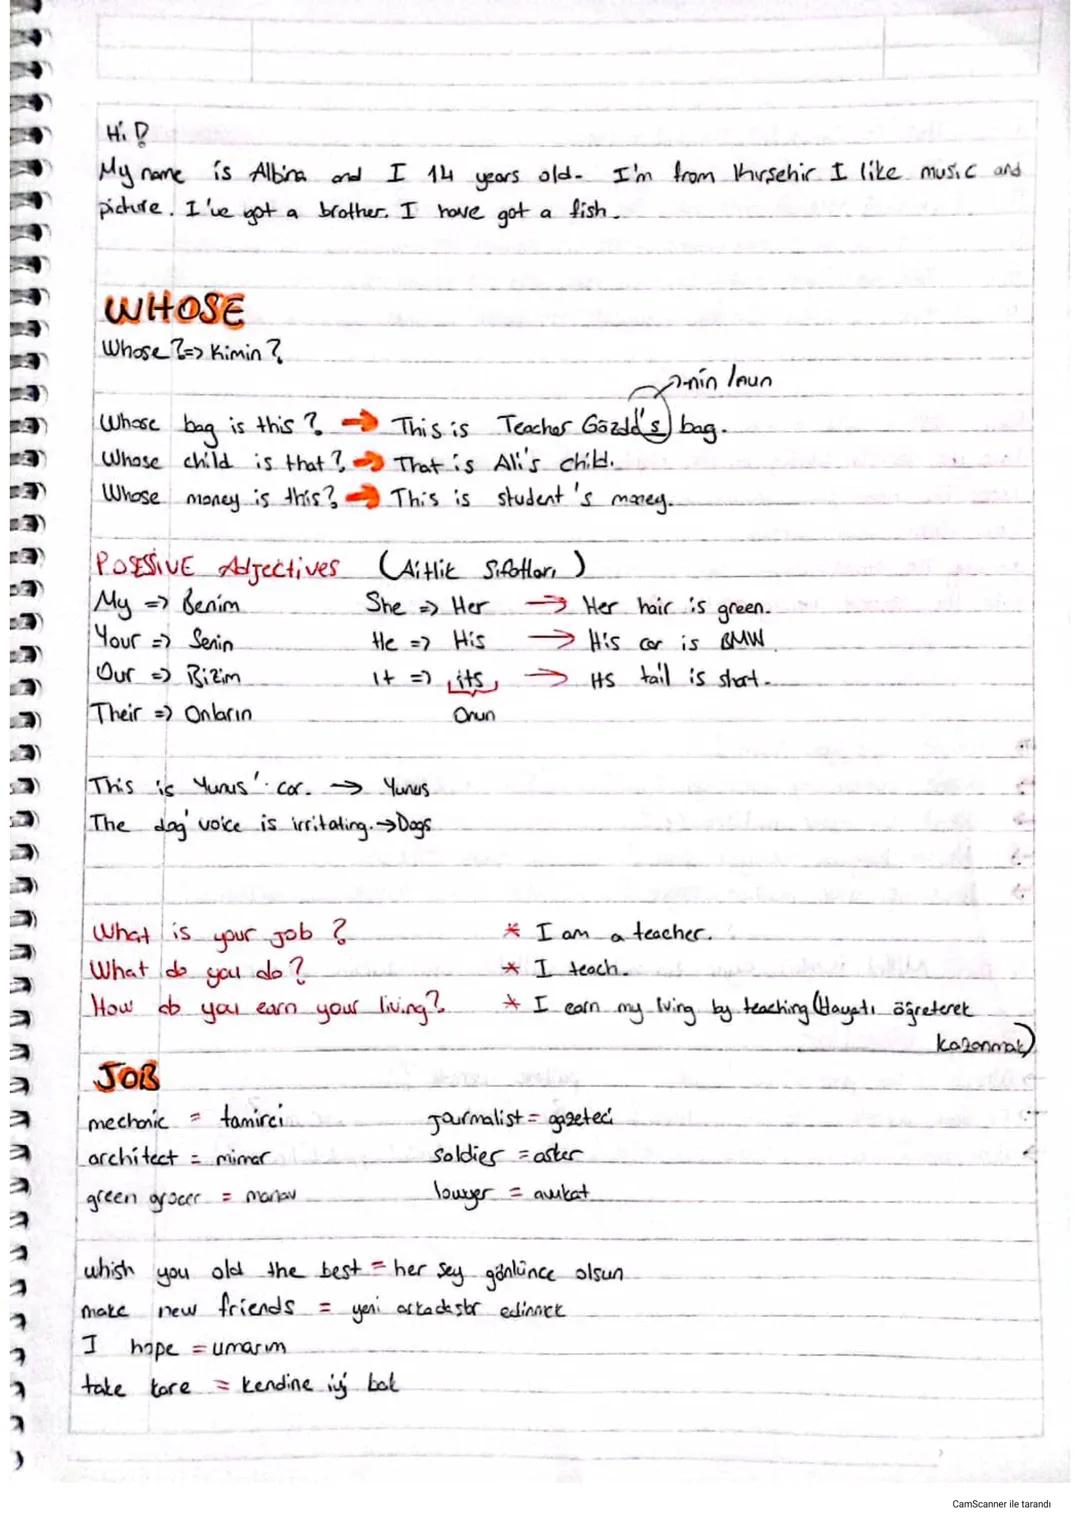 Hi!
My name is Albina and I 14 years old. I'm from Kırşehir I like music and
picture. I've got a brother. I have got a fish.
WHOSE
Whose? => Kimin?
-nin /nun
Whose bag is this? → This is Teacher Gözde's bag.
Whose child is that? → That is Ali's child.
Whose money is this? → This is student's money.
POSESSIVE Adjectives (Aitlik Sıfatları)
My => Benim She => Her → Her hair is green.
Your => Senin He => His → His car is BMW.
Our => Bizim It => its → Its tail is short.
Their => Onların Onun
This is Yunus' car. → Yunus
The dog' voice is irritating. → Dogs
What is your job? * I am a teacher.
What do you do? * I teach.
How do you earn your living? * I earn my lving by teaching (Hayatı öğreterek
kazanmak)
JOB
mechanic = tamirci journalist = gazeteci
architect = mimar soldier = asker
green grocer = manav lawyer = avukat
whish you old the best = her şey gönlünce olsun
make new friends = yeni arkadaşlar edinmek
I hope = umarım
take kare = kendine iyi bak
CamScanner ile tarandı